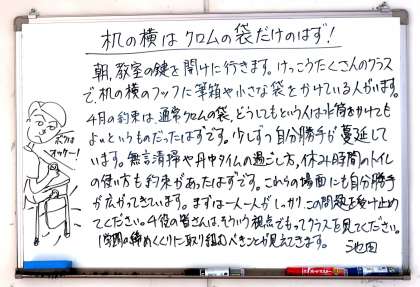 机の横はクロムの袋だけのはず!
朝、教室の鍵を開けに行きます。けっこうたくさんのクラス
で、机の横のフックに筆箱や小さな袋をかけている人がいます。
4月の約束は、通常クロムの袋、どうしてもという人は水筒をかけても
よいというものだったはずです。少しずつ自分勝手が蔓延して
います。無言清掃や丹中タイムの過ごし方、休み時間のトイレ
の使い方も約束があったはずです。これらの場面にも自分勝手
が広がってきています。まずは一人一人がしっかりこの問題を受け止め
てください。4役の皆さんは、そういう視点でもってクラスを見てください。
1学期の締めくくりに取り組むべきことが見えてきます。 池田
ボクは
オッケー!